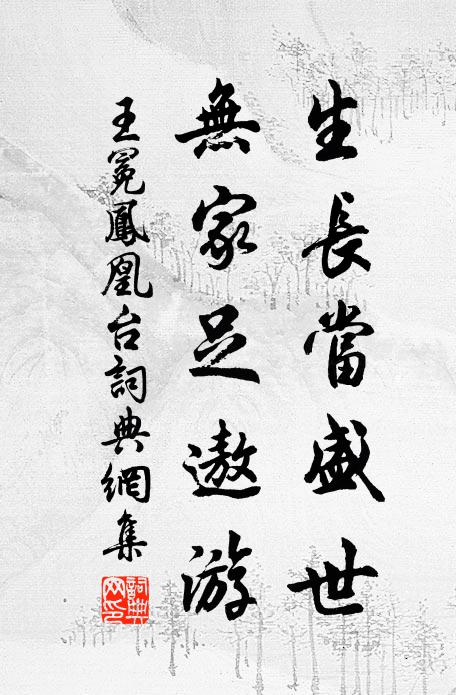 生長當盛世
無家足遨游
王冕鳳凰台詞典網集
詞典網印